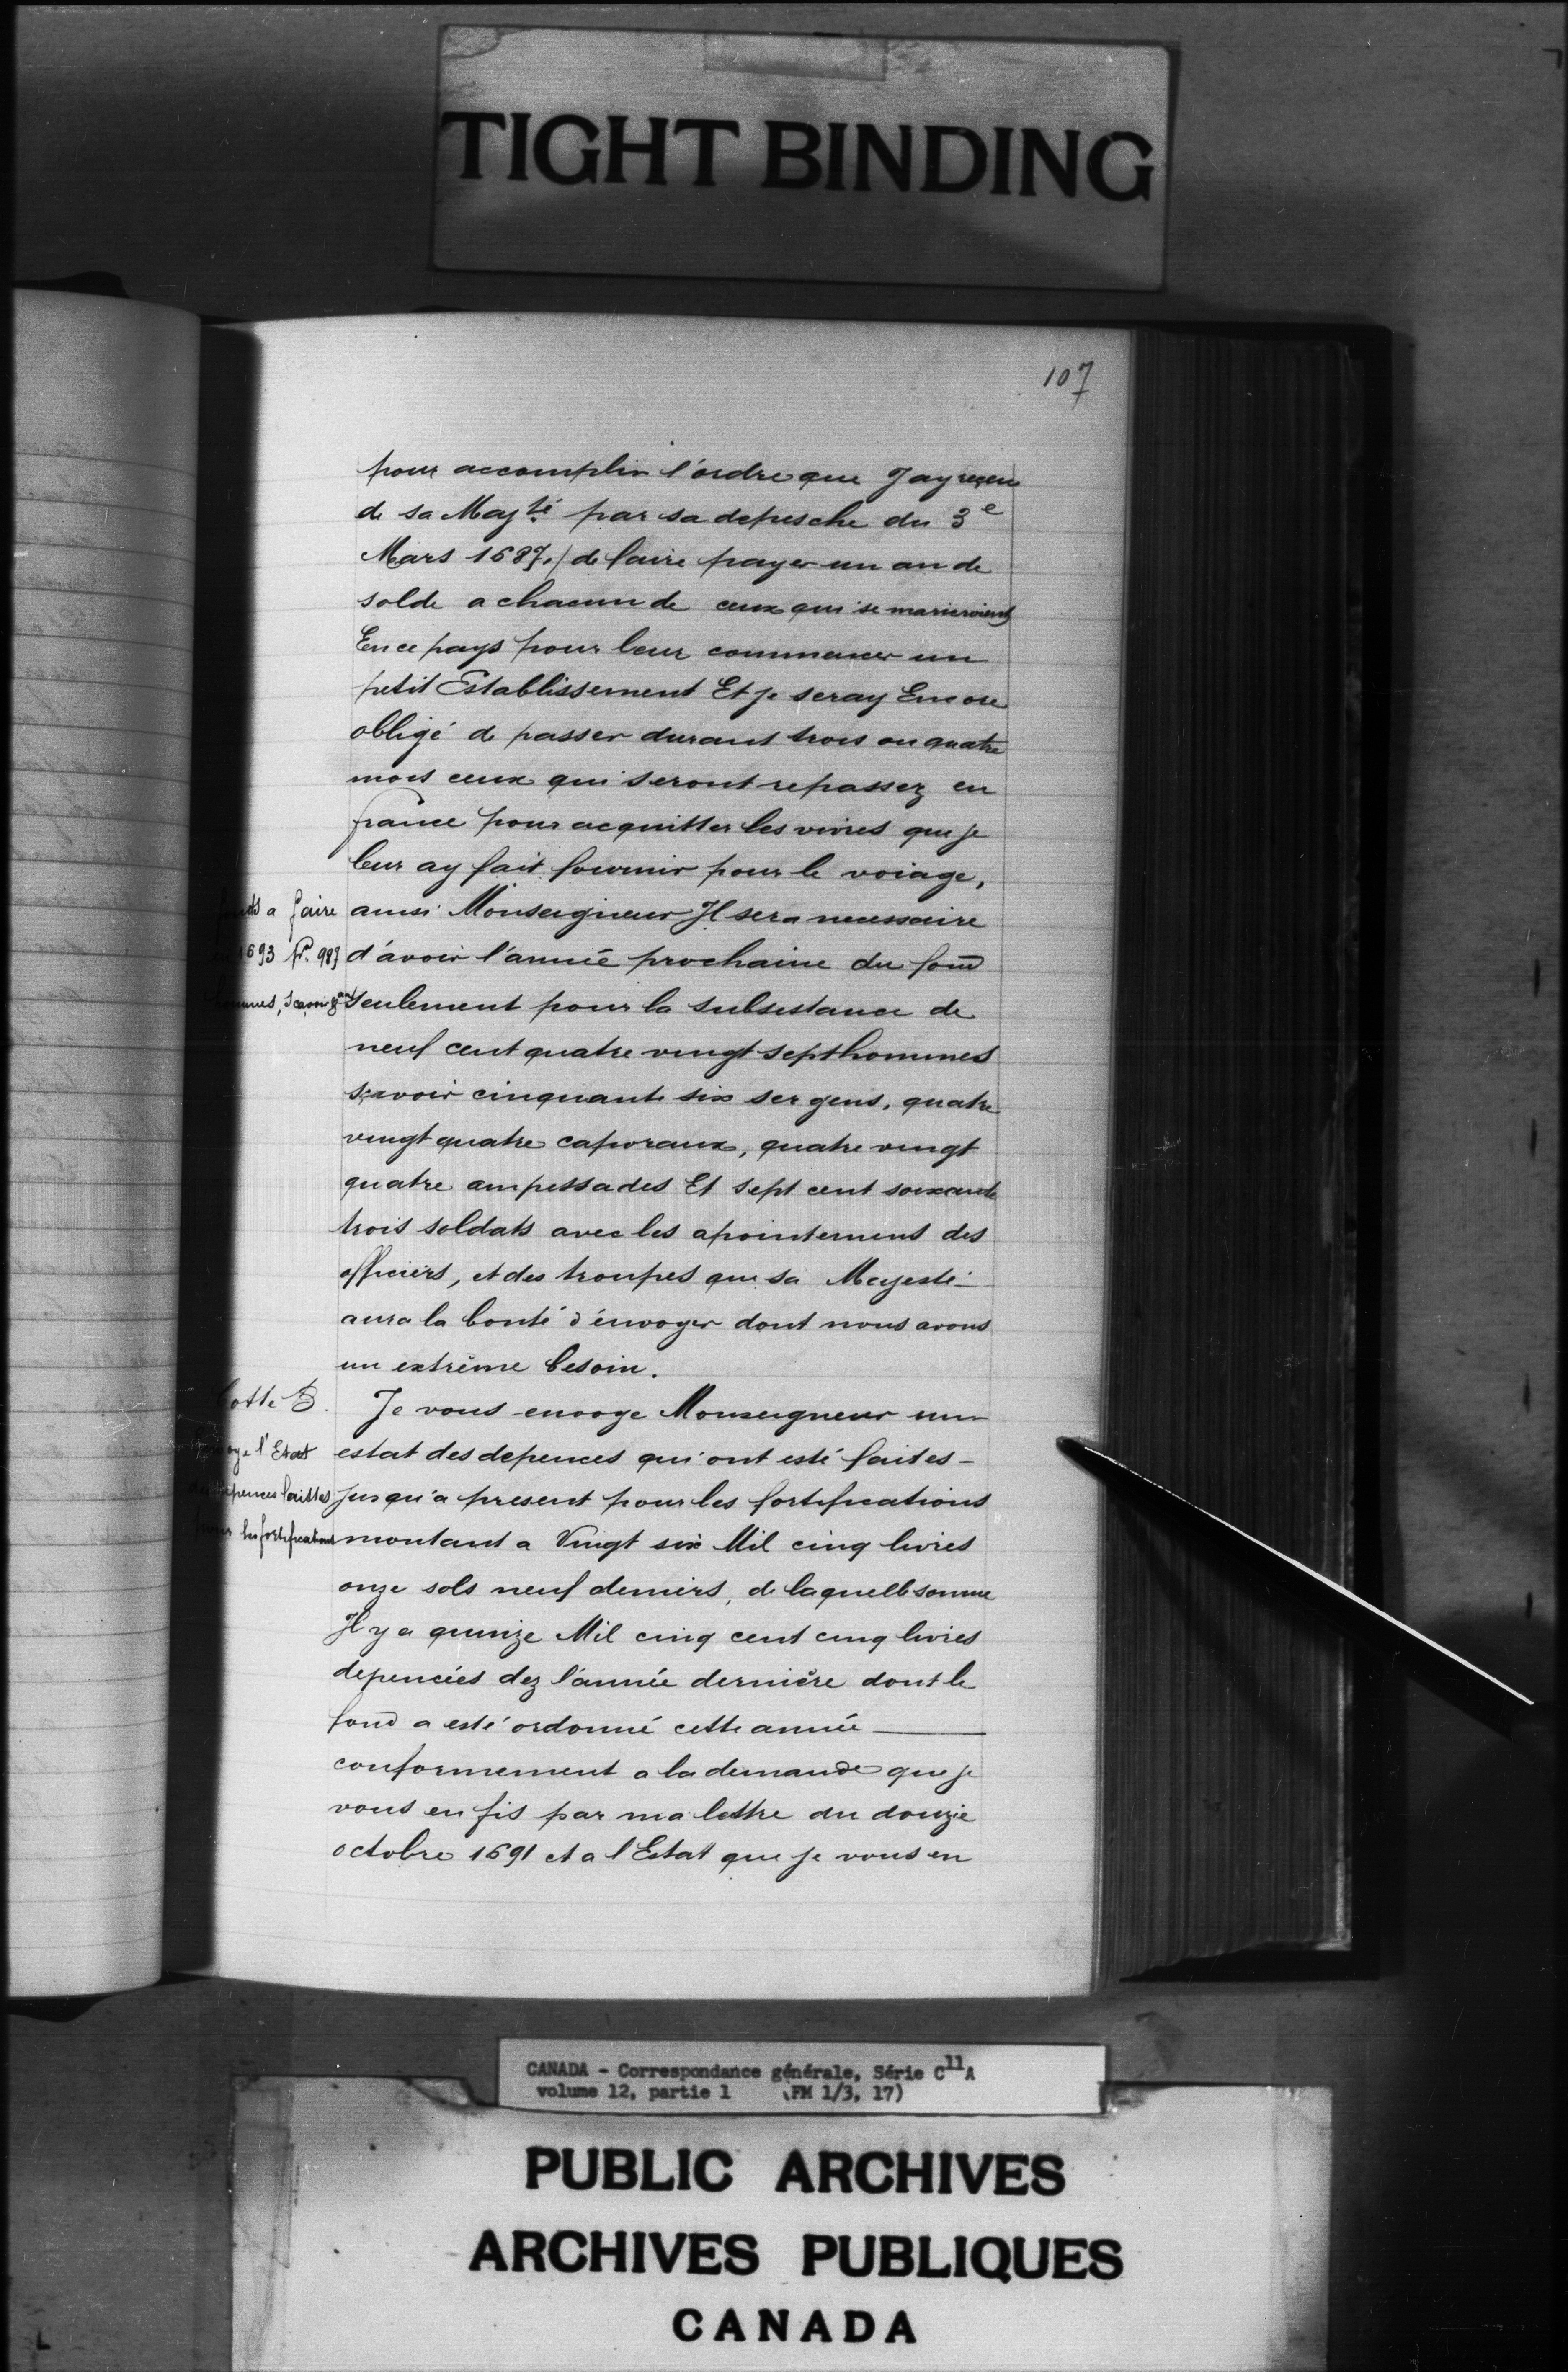 TIGHT BINDING
107
pour accomplir l'ordre que J'ay reçeu
de sa Maj.té par sa depesche du 3e
Mars 1687./ de faire payer un an de
solde a chacun de ceux qui se marieroient
En ce pays pour leur commencer un
petit Establissement Et je seray Encore
obligé de passer durant trois ou quatre
mois ceux qui seront repassez en
france pour acquitter les vivres que je
leur ay fait fournir pour le voiage,
ainsi Monseigneur Il sera necessaire
d'avoir l'année prochaine du fond
seulement pour la subsistance de
neuf cent quatre vingt sept hommes
sçavoir cinquante six sergens, quatre
vingt quatre caporaux, quatre vingt
quatre ampessades Et sept cent soixante
trois soldats avec les apointemens des
officiers, et des troupes que sa Majesté
aura la bonté d'envoyer dont nous avons
un extrême besoin.
a faire
1693 pr. 987
Je vous envoye Monseigneur un
estat des depences qui ont esté faites
Jusqu'a present pour les fortifications
montant a Vingt six Mil cinq livres
onze sols neuf deniers, de laquelle somme
Il y a quinze Mil cinq cent cinq livres
depencées dez l'année derniére dont le
fond a esté ordonné cette année
conformement a la demande que je
vous en fis par ma lettre du douzie
octobre 1691 et a l'Estat que je vous en
Cotté B.
l'Estat
depences faittes
les fortifications
CANADA - Correspondance générale, Série C11A
volume 12, partie 1 (FM 1/3, 17)
PUBLIC ARCHIVES
ARCHIVES PUBLIQUES
CANADA